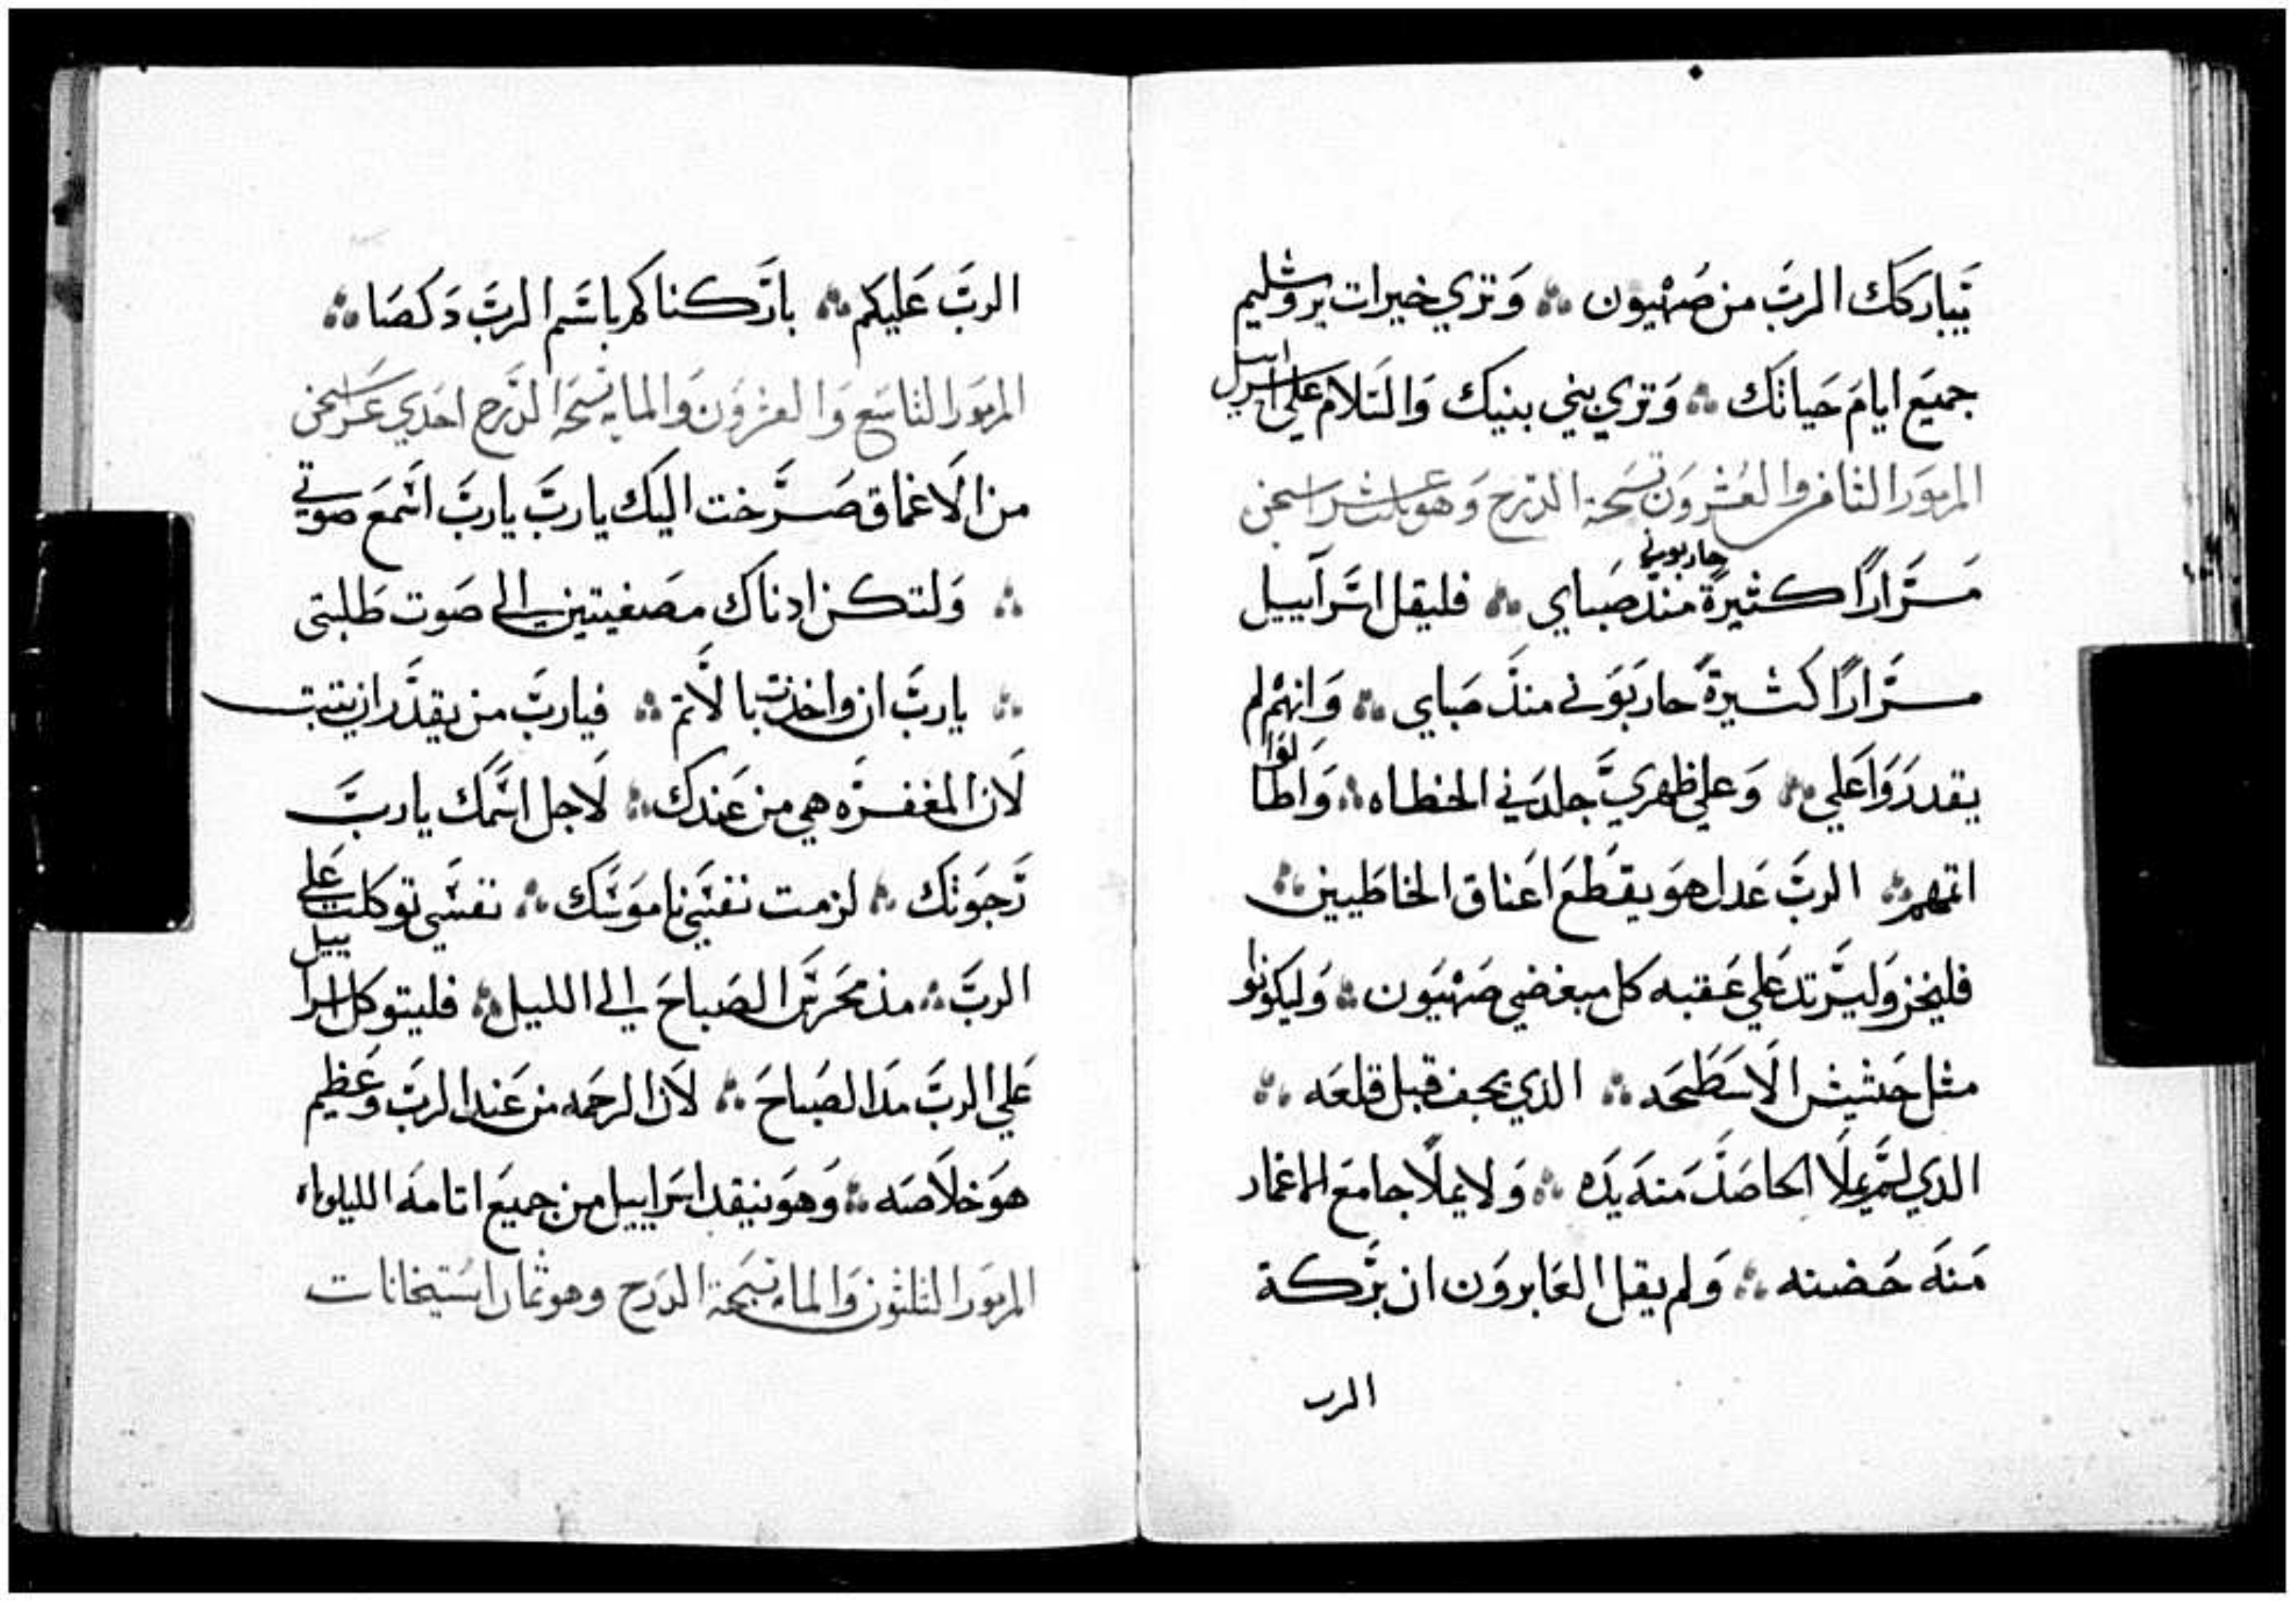 يباركك الرب من صهيون وتري خيرات يروشليم
جميع ايام حياتك وتري بني بنيك والسلام علي اسراييل
المزمور الثامن والعشرون تسبحة الدرج وهو عشر استخن
مرارا كثيرة حاربوني منذ صباي فليقل اسراييل
مرارا كثيرة حاربوني منذ صباي وانهم لم
يقدروا علي وعلي ظهري جلدني الخطاه واطالوا
اتمهم الرب عدل هو يقطع اعناق الخاطيين
فليخز وليرتد علي عقبه كل مبغضي صهيون وليكونوا
مثل حشيش الاسطحه الذي يجف قبل قلعه
الذي لم يملا الحاصد منه يده ولا يملا جامع الاغمار
منه حضنه ولم يقل العابرون ان بركة
الرب
الرب عليكم باركناكم باسم الرب دكصا
المزمور التاسع والعشرون والمايه تسبحة الدرج احدي عشر استخن
من الاعماق صرخت اليك يارب يارب اسمع صوتي
ولتكن ادناك مصغيتين الي صوت طلبتي
يارب ان واخذت بالاثم فيارب من يقدر ان يثبت
لان المغفره هي من عندك لاجل اسمك يارب
رجوتك لزمت نفسي ناموسك نفسي توكلت علي
الرب مذ محرس الصباح الي الليل فليتوكل اسراييل
علي الرب مد الصباح لان الرحمه من عند الرب وعظيم
هو خلاصه وهو ينقد اسراييل من جميع اثامه الليلوياه
المزمور الثلثون والمايه تسبحة الدرج وهو ثمان استيخانات